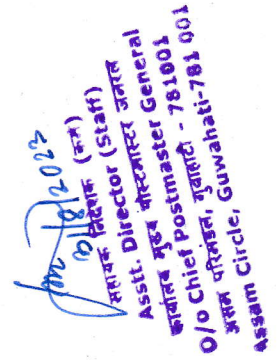 31/8/2023
सहायक निदेशक (स्टाफ)
Asstt. Director (Staff)
कार्यालय मुख्य पोस्टमास्टर जनरल
O/o Chief Postmaster General
असम परिमंडल, गुवाहाटी - 781001
Assam Circle, Guwahati-781 001